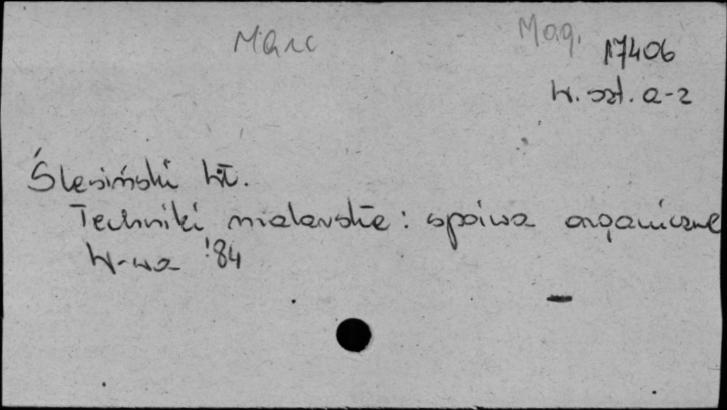 Marc
Mag. 17406
W. szt. a-z
Ślesiński Wł.
Techniki malarskie: spoiwa organiczne
W-wa '84